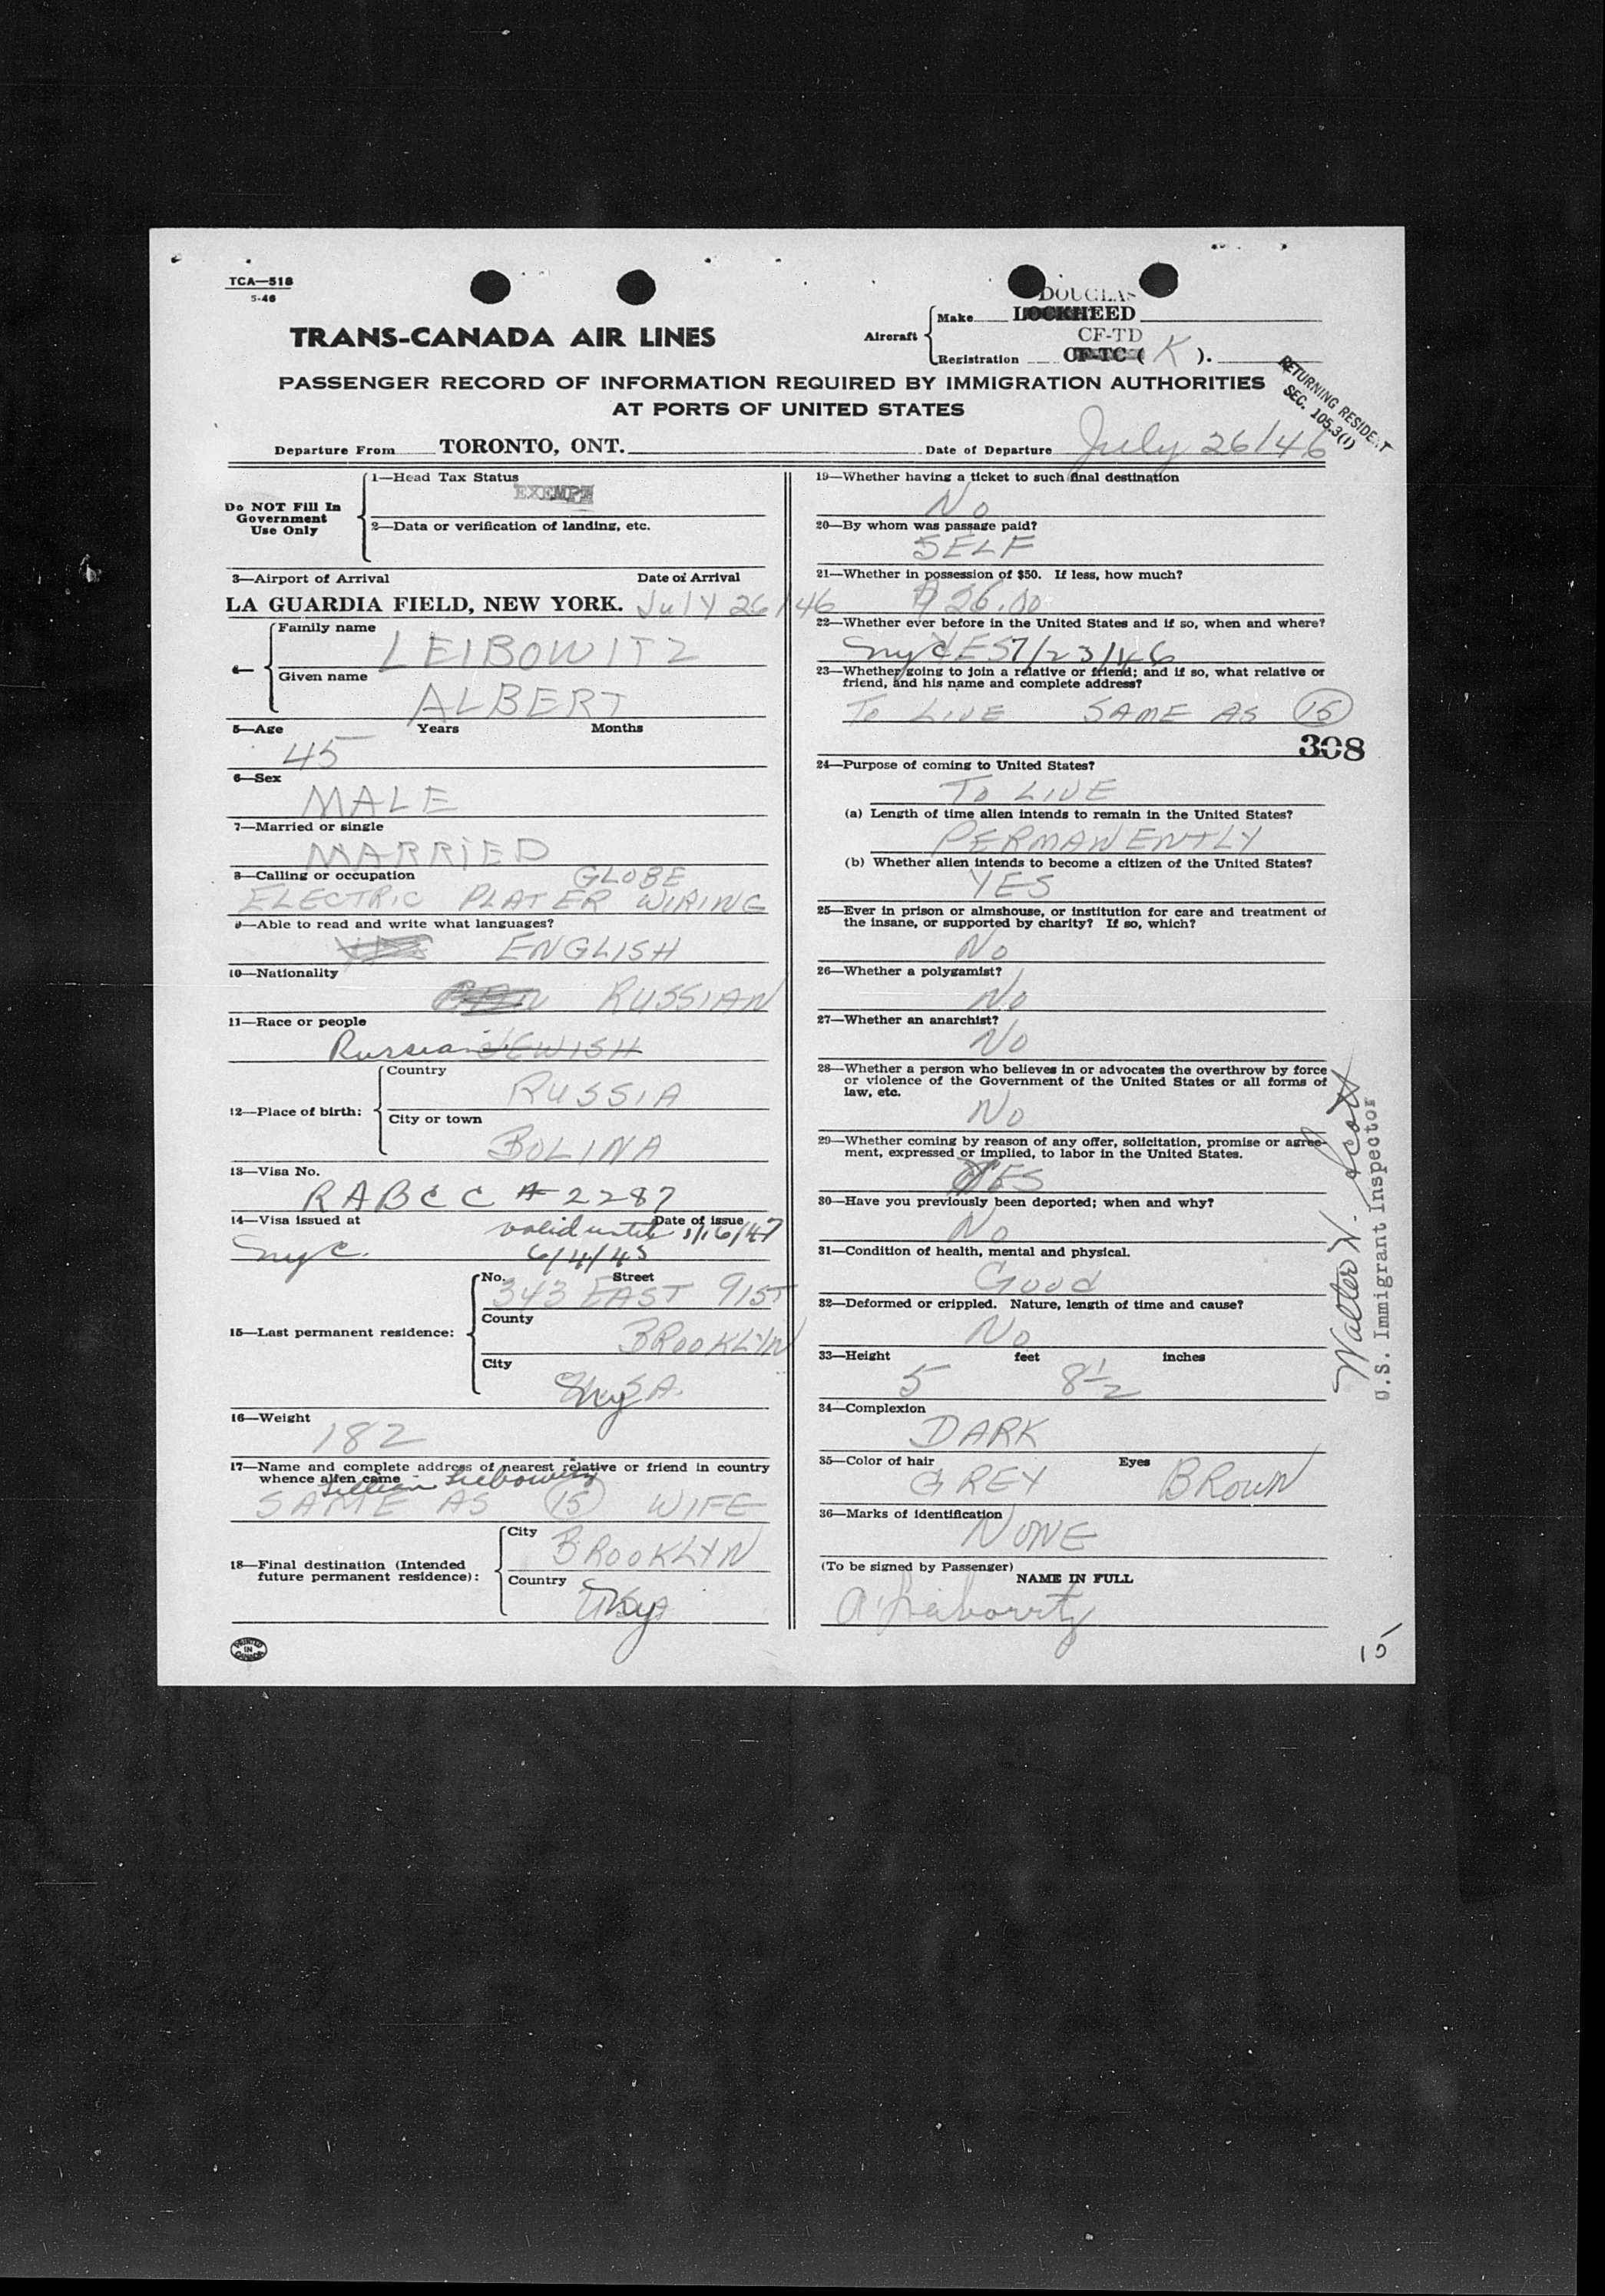 TCA—518
5-46
TRANS-CANADA AIR LINES
Aircraft
Make
DOUGLAS
LOCKHEED
CF-TD
Registration CF-TC ( K ).
PASSENGER RECORD OF INFORMATION REQUIRED BY IMMIGRATION AUTHORITIES
AT PORTS OF UNITED STATES
RETURNING RESIDENT
SEC. 105.3(1)
Departure From TORONTO, ONT. Date of Departure July 26/46
Do NOT Fill In
Government
Use Only
1—Head Tax Status
EXEMPT
2—Data or verification of landing, etc.
3—Airport of Arrival Date of Arrival
LA GUARDIA FIELD, NEW YORK. July 26/46
4—
Family name
LEIBOWITZ
Given name
ALBERT
5—Age Years Months
45
6—Sex
MALE
7—Married or single
MARRIED
8—Calling or occupation GLOBE
ELECTRIC PLATER WIRING
9—Able to read and write what languages?
ENGLISH
10—Nationality
RUSSIAN
11—Race or people
Russian JEWISH
12—Place of birth:
Country
RUSSIA
City or town
BOLINA
13—Visa No.
RABCC # 2287
14—Visa issued at Date of issue
valid until 1/16/47
NYC. 6/4/45
15—Last permanent residence:
No. Street
343 EAST 91ST
County
BROOKLYN
City
16—Weight
182
17—Name and complete address of nearest relative or friend in country
whence alien came
Lillian Leibowitz
SAME AS (15) WIFE
18—Final destination (Intended
future permanent residence):
City
BROOKLYN
Country
PRINTED
IN
CANADA
19—Whether having a ticket to such final destination
No
20—By whom was passage paid?
SELF
21—Whether in possession of $50. If less, how much?
$26.00
22—Whether ever before in the United States and if so, when and where?
NYC YES 7/23/46
23—Whether going to join a relative or friend; and if so, what relative or
friend, and his name and complete address?
TO LIVE SAME AS (15)
308
24—Purpose of coming to United States?
TO LIVE
(a) Length of time alien intends to remain in the United States?
PERMANENTLY
(b) Whether alien intends to become a citizen of the United States?
YES
25—Ever in prison or almshouse, or institution for care and treatment of
the insane, or supported by charity? If so, which?
No
26—Whether a polygamist?
No
27—Whether an anarchist?
No
28—Whether a person who believes in or advocates the overthrow by force
or violence of the Government of the United States or all forms of
law, etc.
No
29—Whether coming by reason of any offer, solicitation, promise or agree-
ment, expressed or implied, to labor in the United States.
YES
30—Have you previously been deported; when and why?
No
31—Condition of health, mental and physical.
Good
32—Deformed or crippled. Nature, length of time and cause?
No
33—Height feet inches
5 8½
34—Complexion
DARK
35—Color of hair Eyes
GREY BROWN
36—Marks of identification
NONE
(To be signed by Passenger)
NAME IN FULL
A. Leibowitz
Walter W. Scott
U.S. Immigrant Inspector
15